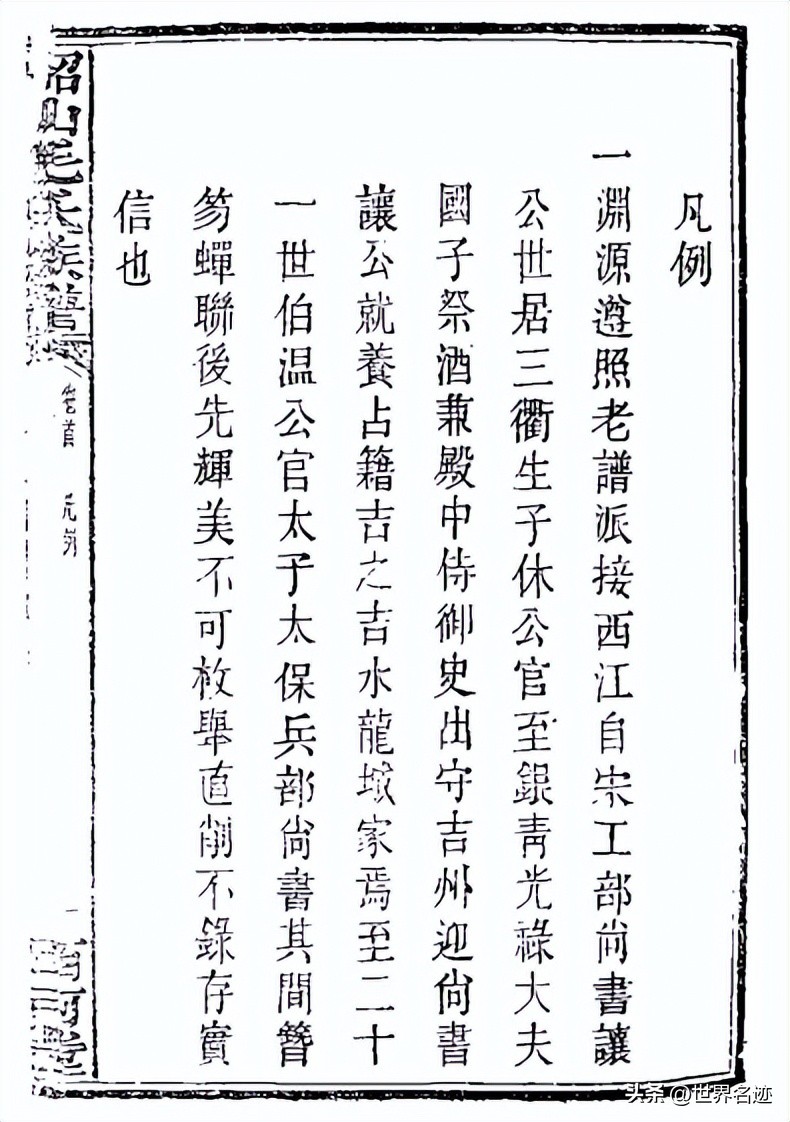 凡例
一淵源遵照老譜派接西江自宋工部尚書讓
公世居三衢生子休公官至銀青光祿大夫
國子祭酒兼殿中侍御史出守吉州迎尚書
讓公就養占籍吉之吉水龍城家焉至二十
一世伯温公官太子太保兵部尚書其間簪
笏蟬聯後先輝美不可枚舉直削不錄存實
信也
韶山毛氏族譜
卷首 凡例
一
西河堂
头条 @世界名迹